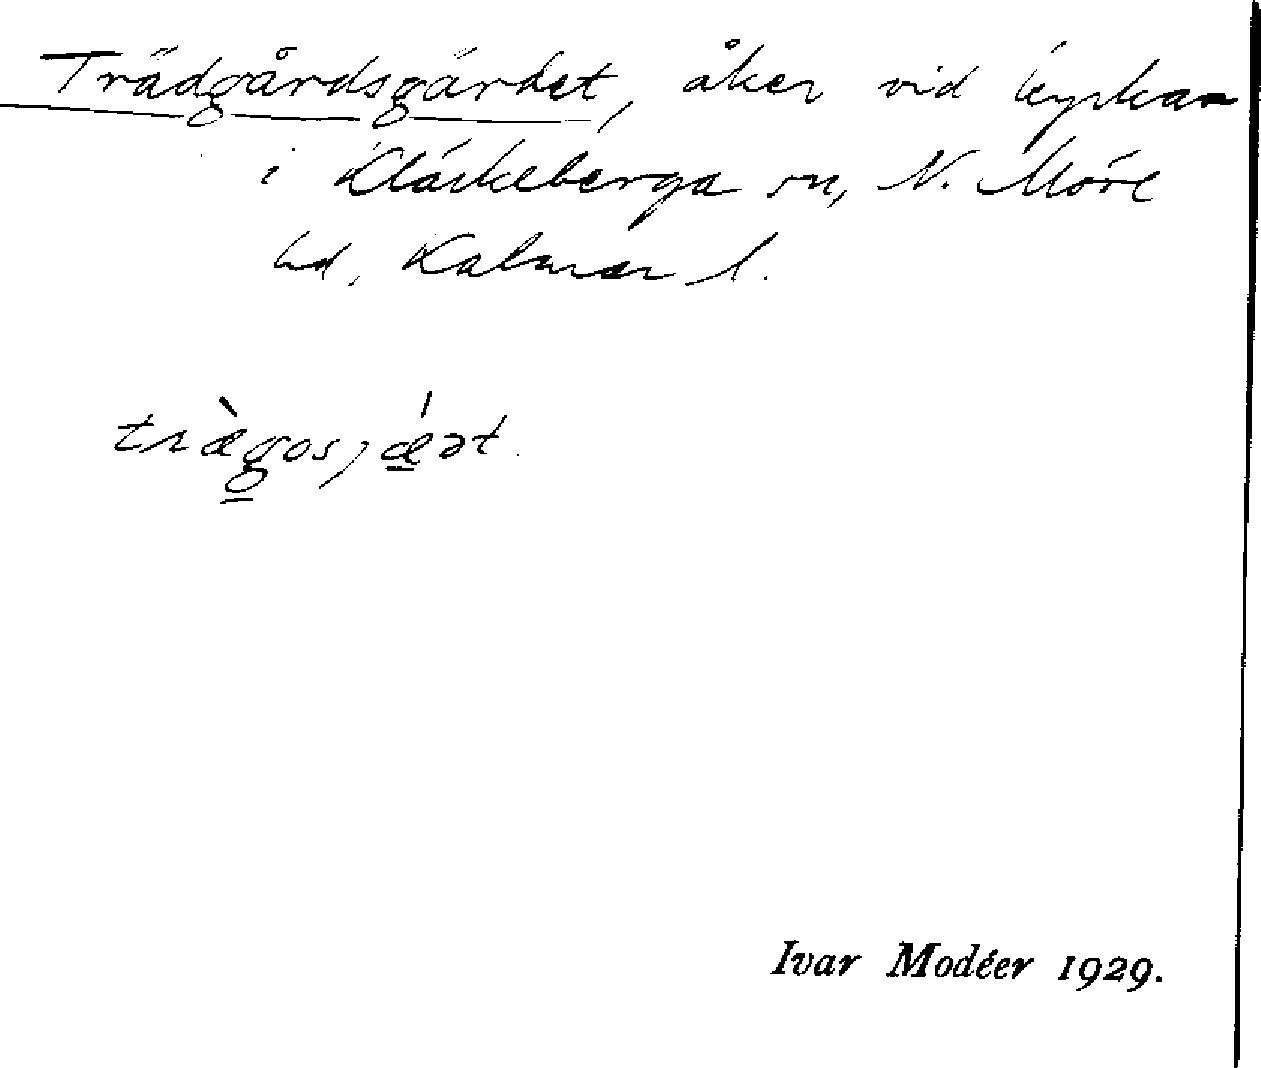 Trädgårdsgärdet, åker vid kyrkan
i Kläckeberga sn, N. Möre
hd, Kalmar l.
træ̀gosjǽət.
Ivar Modéer 1929.